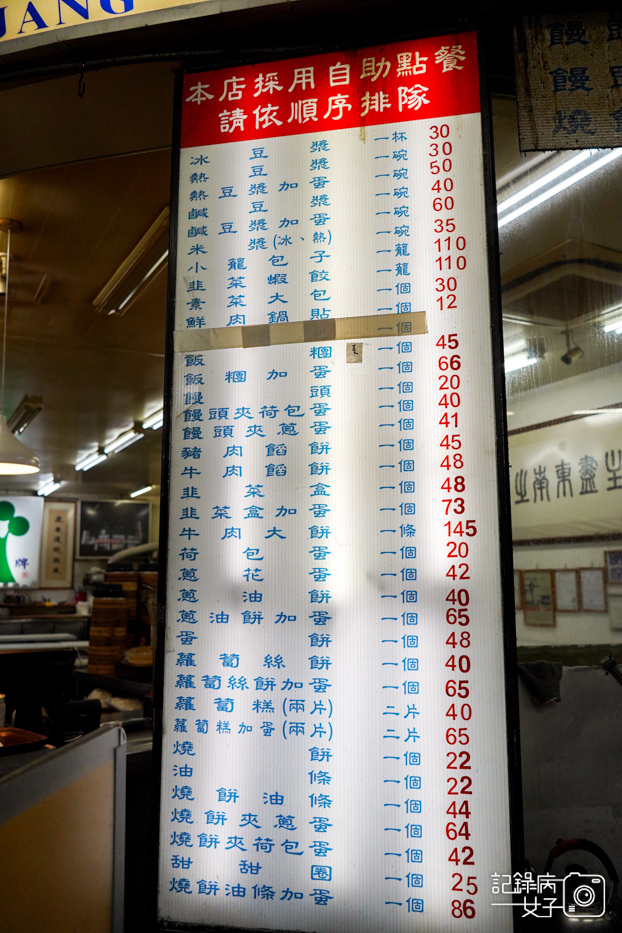 UANG
本店採用自助點餐
請依順序排隊
冰豆漿 一杯 30
熱豆漿 一碗 30
熱豆漿加蛋 一碗 50
鹹豆漿 一碗 40
鹹豆漿加蛋 一碗 60
米漿(冰、熱) 一碗 35
小籠包子 一籠 110
韭菜蝦餃 一籠 110
素菜大包 一個 30
鮮肉鍋貼 一個 12
一個
飯糰 一個 45
飯糰加蛋 一個 66
饅頭 一個 20
饅頭夾荷包蛋 一個 40
饅頭夾蔥蛋 一個 41
豬肉餡餅 一個 45
牛肉餡餅 一個 48
韭菜盒 一個 48
韭菜盒加蛋 一個 73
牛肉大餅 一條 145
荷包蛋 一個 20
蔥花蛋 一個 42
蔥油餅 一個 40
蔥油餅加蛋 一個 65
蛋餅 一個 48
蘿蔔絲餅 一個 40
蘿蔔絲餅加蛋 一個 65
蘿蔔糕(兩片) 二片 40
蘿蔔糕加蛋(兩片) 二片 65
燒餅 一個 22
油條 一個 22
燒餅油條 一個 44
燒餅夾蔥蛋 一個 64
燒餅夾荷包蛋 一個 42
甜甜圈 一個 25
燒餅油條加蛋 一個 86
饅
饅
燒
牌
生盡東南
記錄病
女子